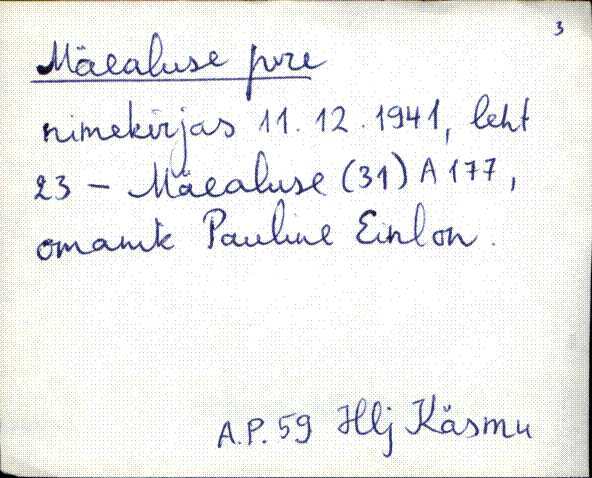 3
Mäealuse pere
nimekirjas 11.12.1941, leht
23 - Mäealuse (31) A 177,
omanik Pauline Einlon.
A.P. 59 Hlj Käsmu